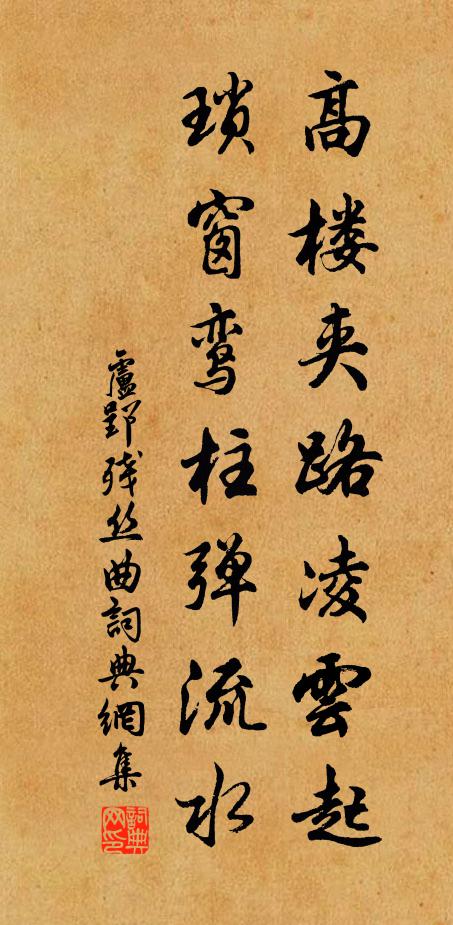 高楼夹路凌雲起
瑣窗鸾柱弹流水
盧郢残丝曲詞典網集
詞典网印